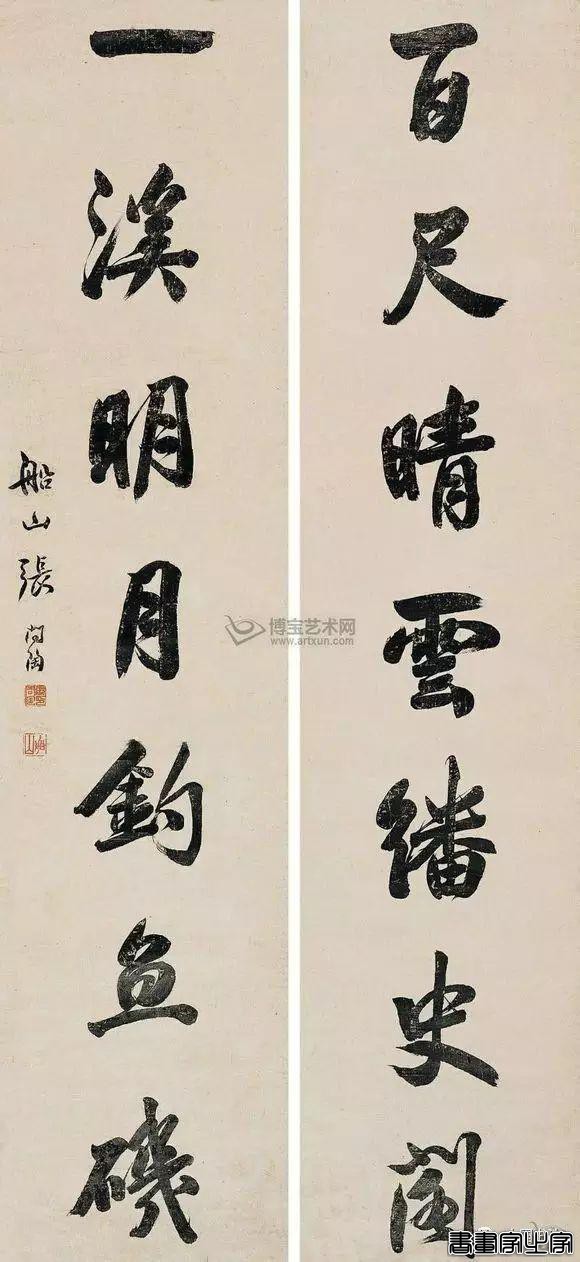 百尺晴雲繙史閣
一溪明月釣魚磯
船山張問陶
博宝艺术网
www.artxun.com